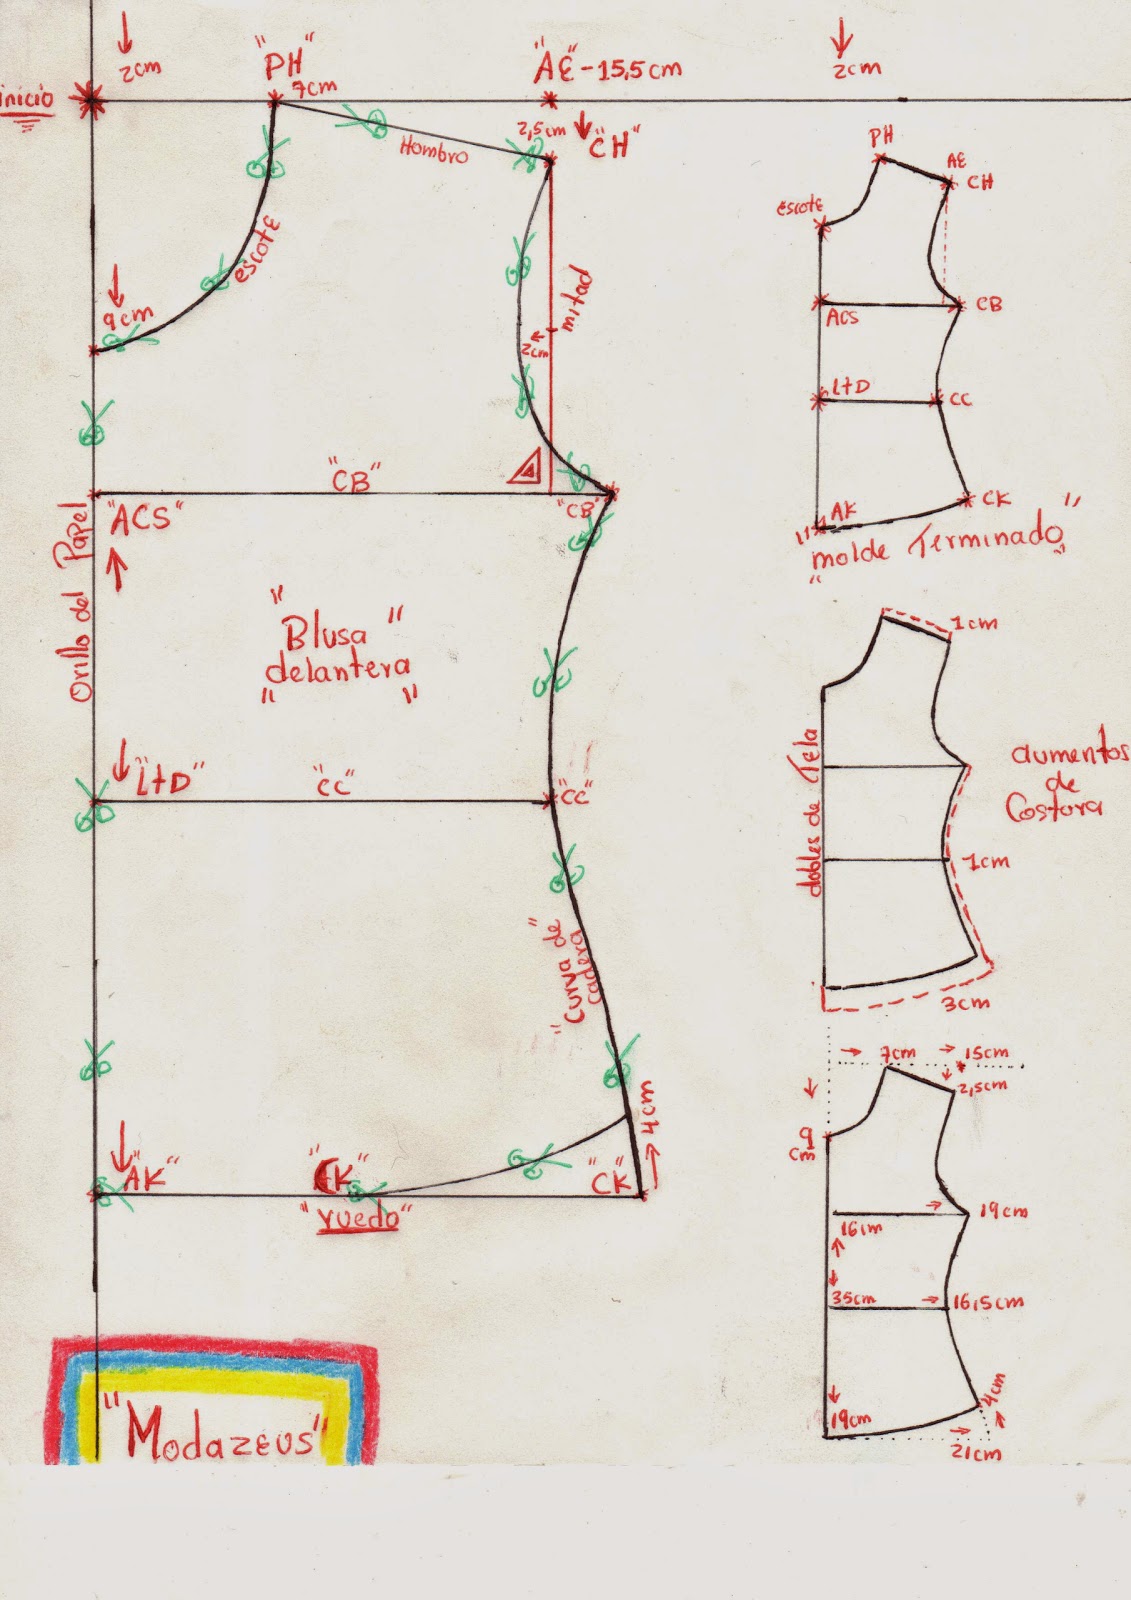 2cm
"PH"
7cm
"AE" - 15,5 cm
2cm
inicio
2,5cm
"CH"
Hombro
escote
9cm
mitad
2cm
"CB"
"CB"
"ACS"
Orillo del Papel
"Blusa"
"delantera"
"LTD"
"CC"
"CC"
"Curva de cadera"
4cm
"AK"
"CK"
"CK"
"ruedo"
"Modazeus"
PH
AE
CH
escote
ACS
CB
LTD
CC
AK
CK
"molde Terminado"
1cm
dobles de Tela
aumentos
de
Costura
1cm
3cm
7cm
15cm
2,5cm
9
cm
19cm
16cm
35cm
16,5cm
4cm
19cm
21cm